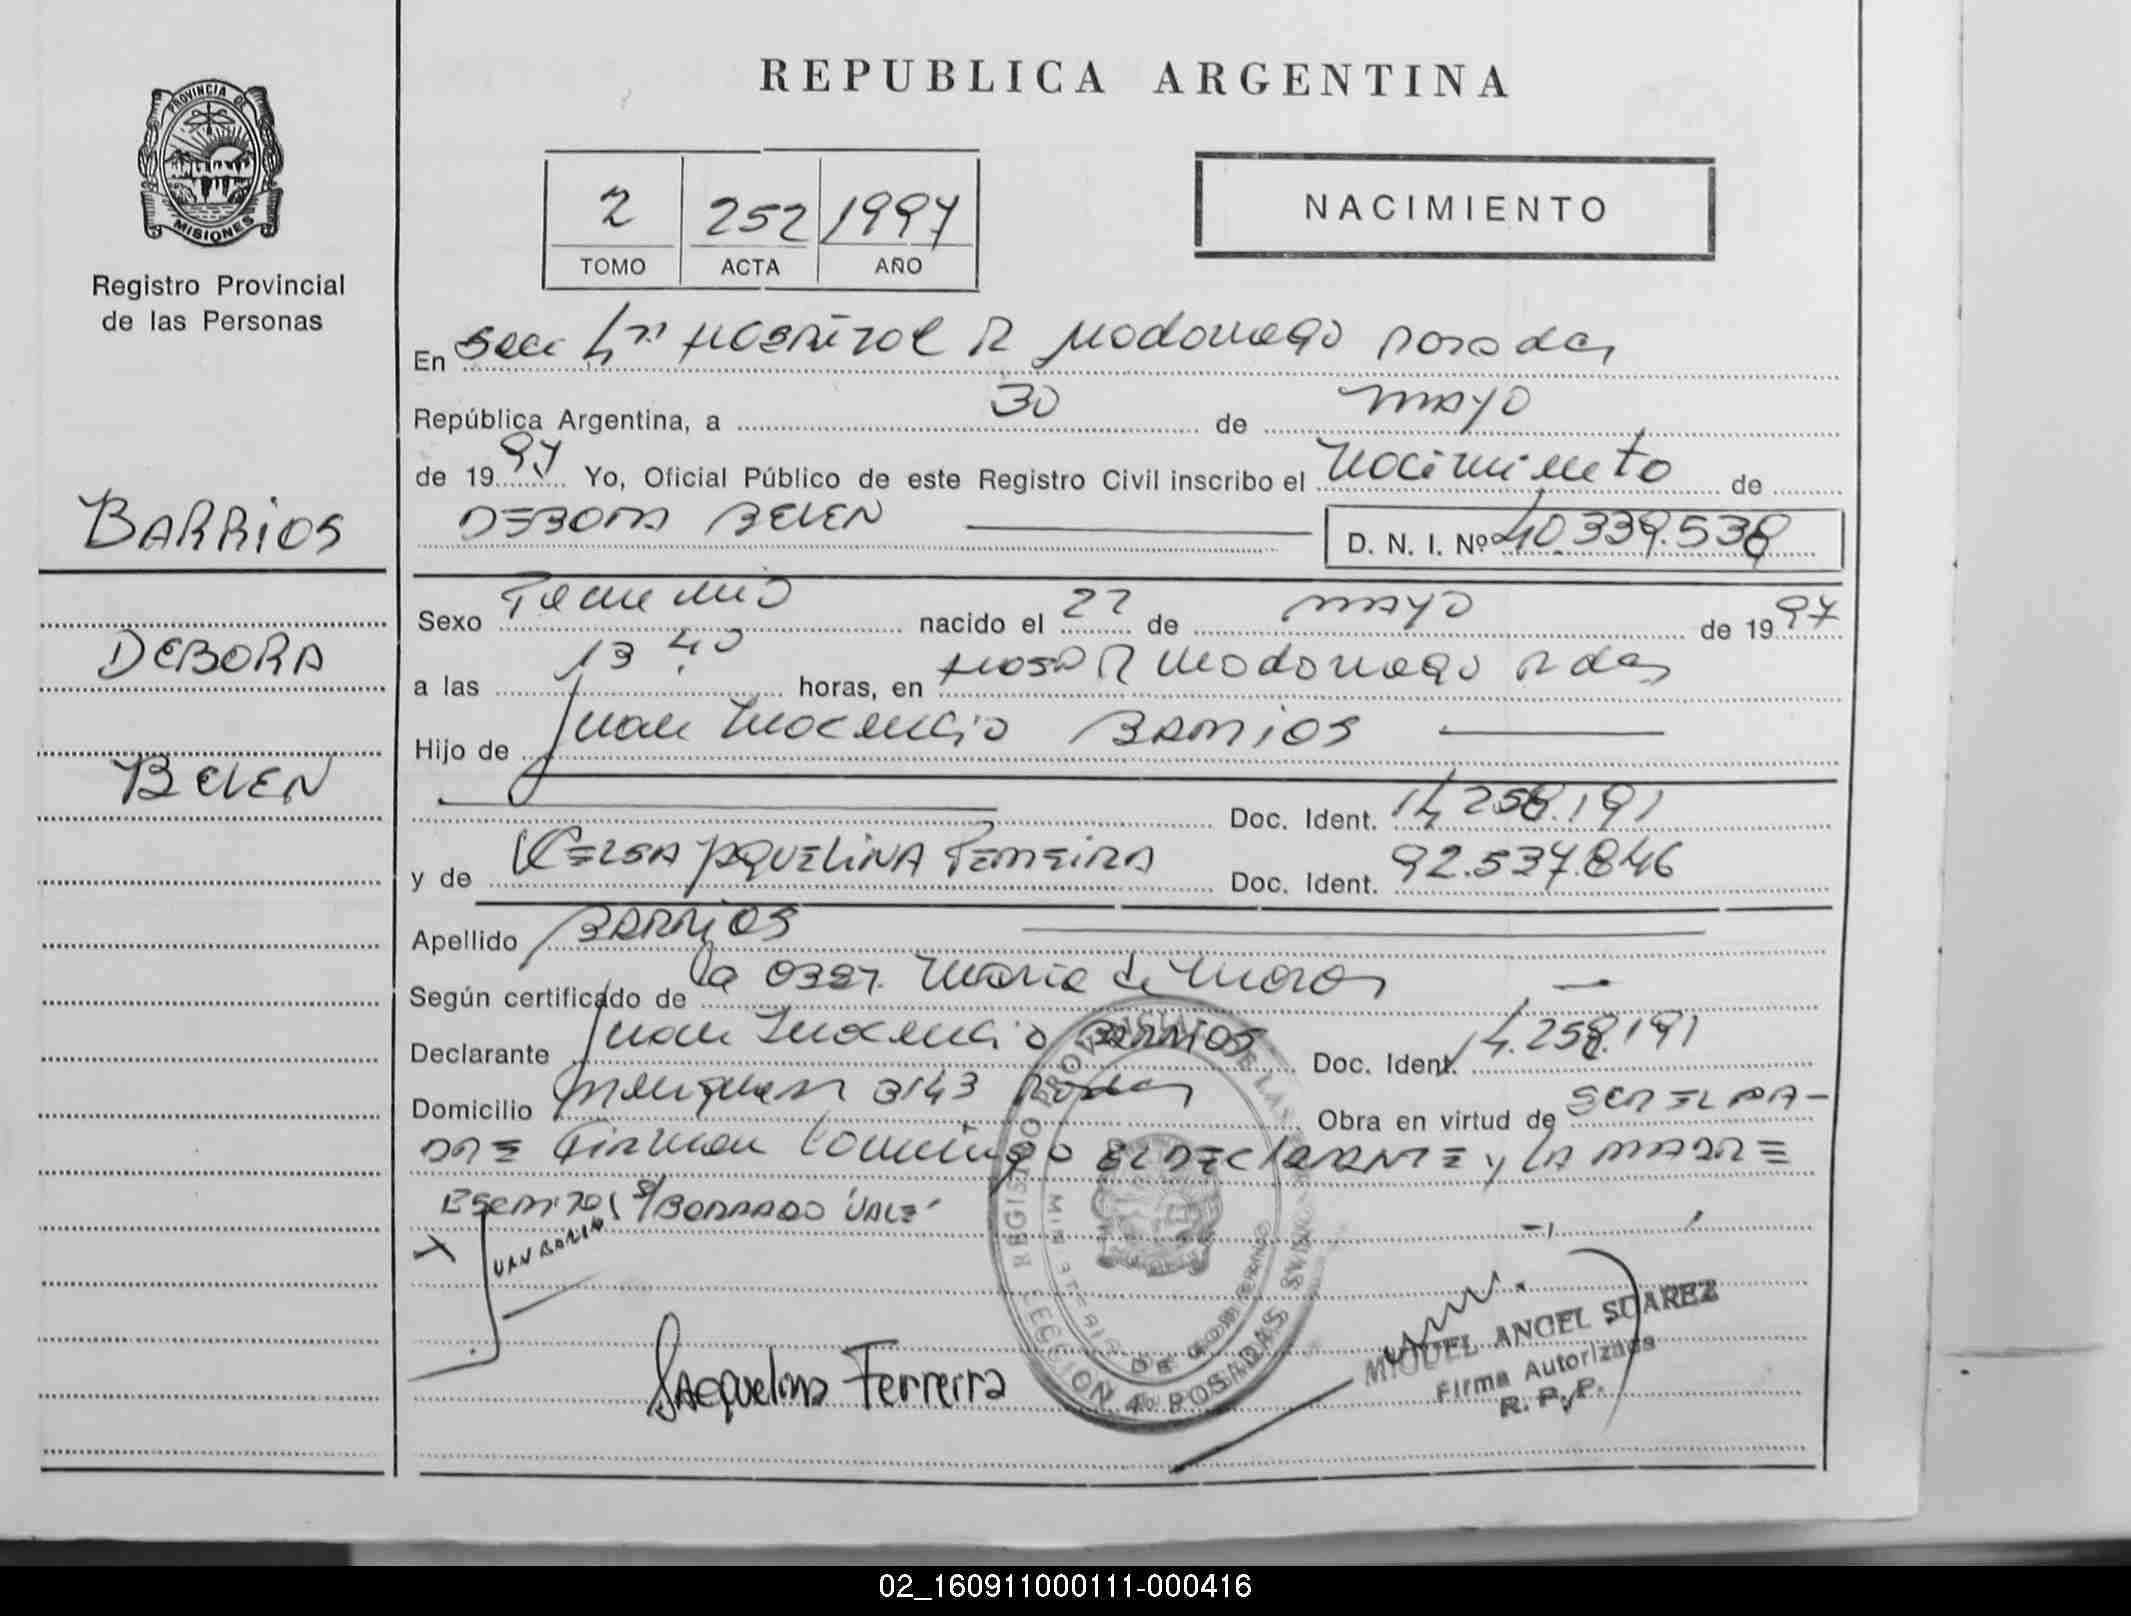 REPUBLICA ARGENTINA
PROVINCIA DE
MISIONES
Registro Provincial
de las Personas
2 252 1997
TOMO ACTA AÑO
NACIMIENTO
BARRIOS
DEBORA
BELEN
En Secc 4ta Hospital R Madariaga Posadas
República Argentina, a 30 de mayo
de 1997 Yo, Oficial Público de este Registro Civil inscribo el Nacimiento de
DEBORA BELEN D. N. I. Nº 40.339.538
Sexo Femenino nacido el 22 de mayo de 1997
a las 13 40 horas, en Hosp R Madariaga Pdas
Hijo de Juan Inocencio BARRIOS
Doc. Ident. 14.258.191
y de CELSA JAQUELINA FERREIRA Doc. Ident. 92.537.846
Apellido BARRIOS
Según certificado de la Obst. Maria de
Declarante Juan Inocencio BARRIOS Doc. Ident. 14.258.191
Domicilio 3143 Posadas Obra en virtud de SER EL PA-
DRE Firman conmigo EL DECLARANTE y LA MADRE
S/BORRADO 'VALE'
Jacquelina Ferreira
REGISTRO PROVINCIAL DE LAS PERSONAS
MINISTERIO DE GOBIERNO
SECCION 4a POSADAS
MIGUEL ANGEL SUAREZ
Firma Autorizada
R. P. P.
02_160911000111-000416